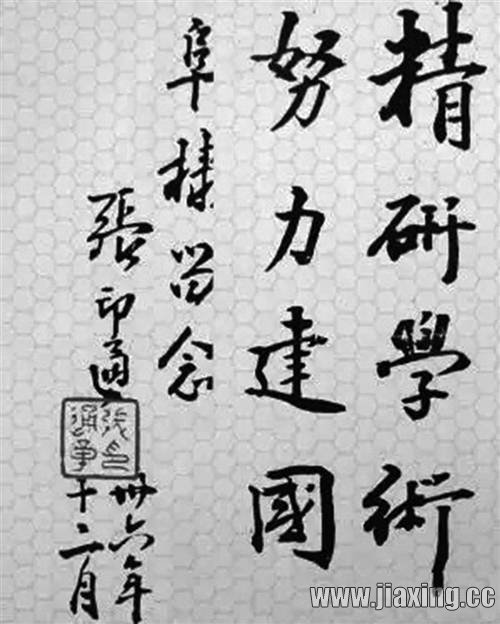 精研學術
努力建國
阜樑留念
張印通
卅六年
十二月
www.jiaxing.cc